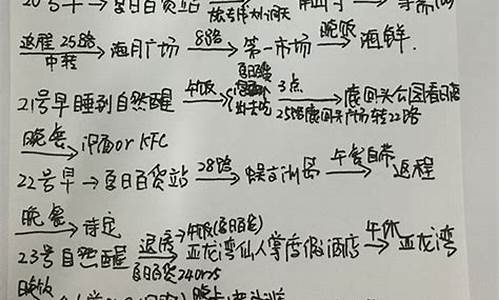 20号早→夏日百货站
返程 25路 中转 海月广场 8路 第一市场 晚饭 海鲜.
21号早睡到自然醒 午饭 3点 鹿回头公园看日落
25路鹿回头广场转22路
晚餐 泡面or KFC
22号早→夏日百货站 28路 蜈支洲岛 午餐自带 返程
晚餐 待定
23号自然醒 退房→午饭(夏日百货) 亚龙湾仙人掌度假酒店 午休 亚龙湾
夏日百货24Or25
晚饭